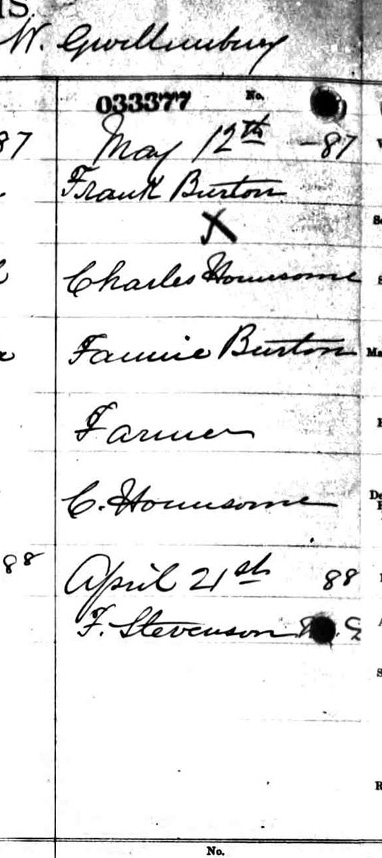 W. Gwillimbury
033377 No.
87 May 12th - 87
Frank Burton
X
Charles Hounsome
Fannie Burton Ma
Farmer
C. Hounsome De
88 April 21st 88
F. Stevenson
R
No.